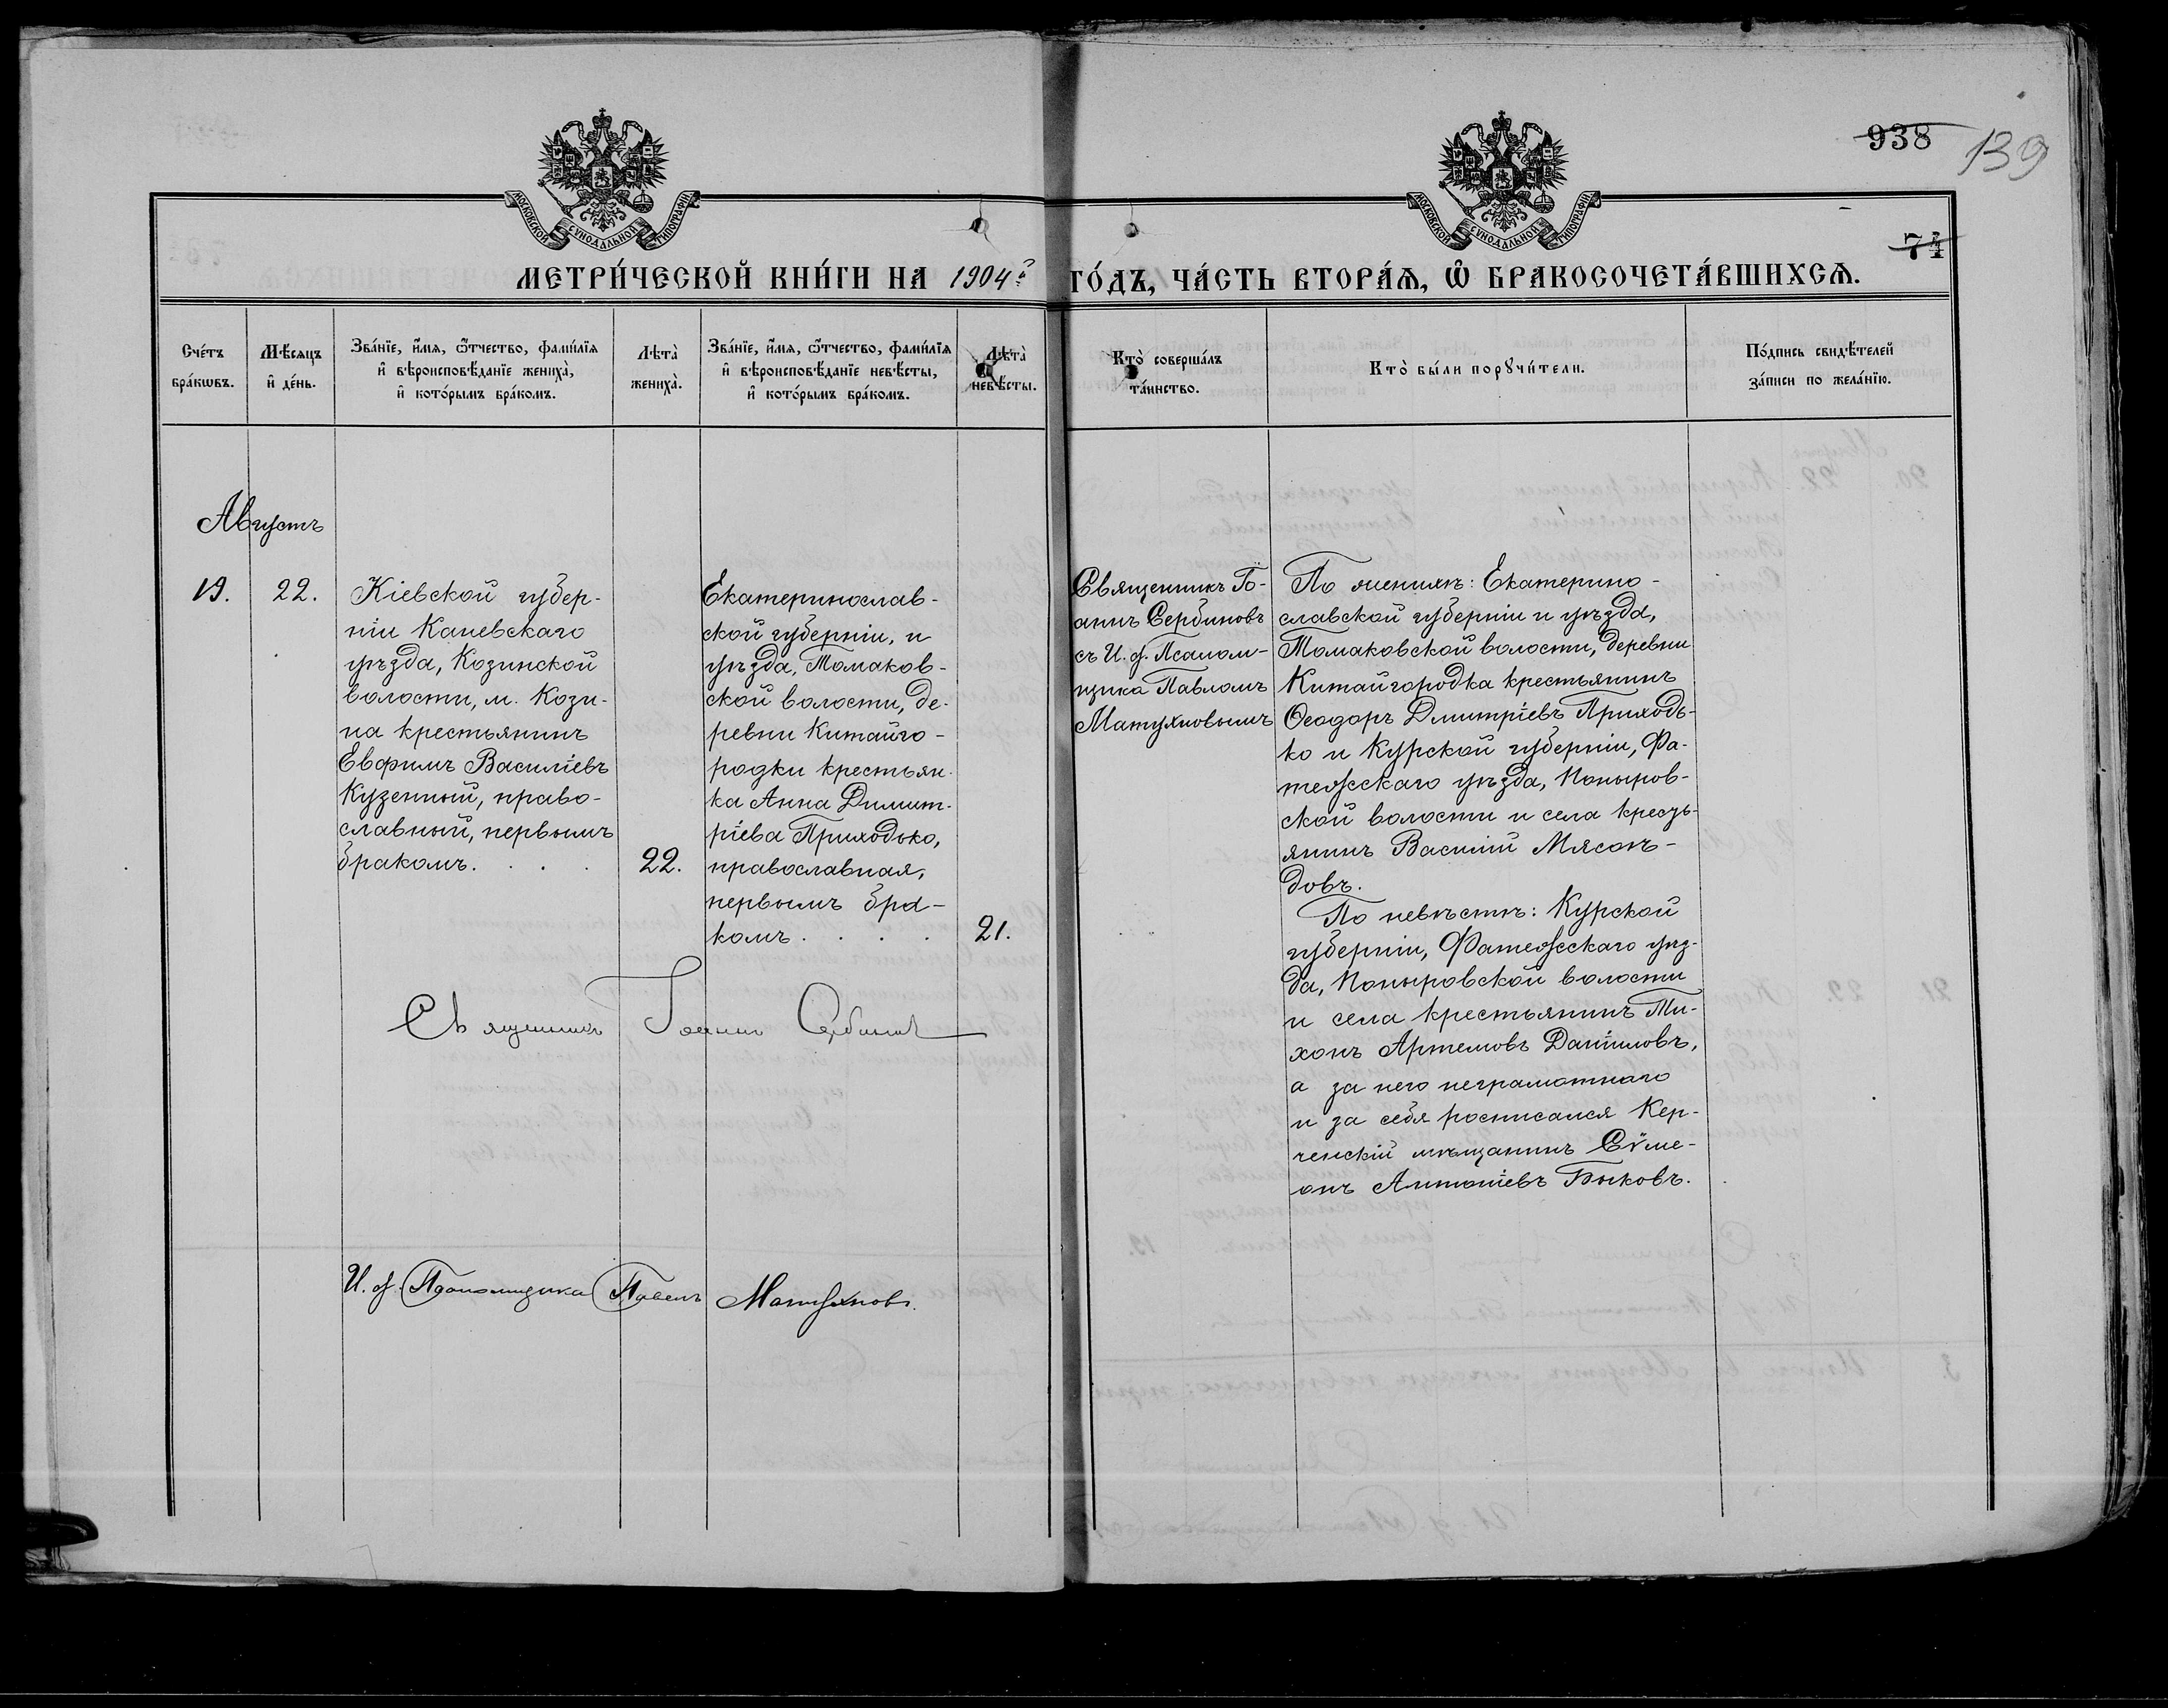 938
139
74
МОСКОВСКОЙ СѴНОДАЛЬНОЙ ТИПОГРАФІИ
МОСКОВСКОЙ СѴНОДАЛЬНОЙ ТИПОГРАФІИ
МЕТРИ́ЧЕСКОЙ КНИ́ГИ НА 1904й ГО́ДЪ, ЧА́СТЬ ВТОРА́Ѧ, Ѽ БРАКОСОЧЕТА́ВШИХСѦ.
Сче́тъ
бра́кѡвъ.
Мѣ́сѧцъ
и҆ де́нь.
Зва́нїе, и҆́мѧ, ѻ҆́тчество, фами́лїѧ
и҆ вѣроисповѣ́данїе жениха̀,
и҆ кото́рымъ бра́комъ.
Лѣта̀
жениха̀.
Зва́нїе, и҆́мѧ, ѻ҆́тчество, фами́лїѧ
и҆ вѣроисповѣ́данїе невѣ́сты,
и҆ кото́рымъ бра́комъ.
Лѣта̀
невѣ́сты.
Кто̀ соверша́лъ
та́инство.
Кто̀ бы́ли порꙋчи́тели.
По́дпись свидѣ́телей
за́писи по жела́нїю.
Августъ
19.
22.
Кіевской губер-
ніи Каневскаго
уѣзда, Козинской
волости, м. Кози-
на крестьянинъ
Евфимъ Василіевъ
Кузенный, право-
славный, первымъ
бракомъ. . . .
22.
Екатеринослав-
ской губерніи, и
уѣзда, Томаков-
ской волости, де-
ревни Китайго-
родки крестьян-
ка Анна Димит-
ріева Приходько,
православная,
первымъ бра-
комъ . . . .
21.
Священникъ Іо-
аннъ Сербиновъ
съ И. д. Псалом-
щика Павломъ
Матухновымъ
По женихѣ: Екатерино-
славской губерніи и уѣзда,
Томаковской волости, деревни
Китайгородка крестьянинъ
Ѳеодоръ Дмитріевъ Приходь-
ко и Курской губерніи, Фа-
тежскаго уѣзда, Поныров-
ской волости и села кресть-
янинъ Василій Мясоѣ-
довъ.
По невѣстѣ: Курской
губерніи, Фатежскаго уѣз-
да, Поныровской волости
и села крестьянинъ Ти-
хонъ Артемовъ Даніиловъ,
а за него неграмотнаго
и за себя росписался Кер-
ченскій мѣщанинъ Сѵме-
онъ Антоніевъ Быковъ.
Священникъ Іоаннъ Сербиновъ
И. д. Псаломщика Павелъ Матухновъ.